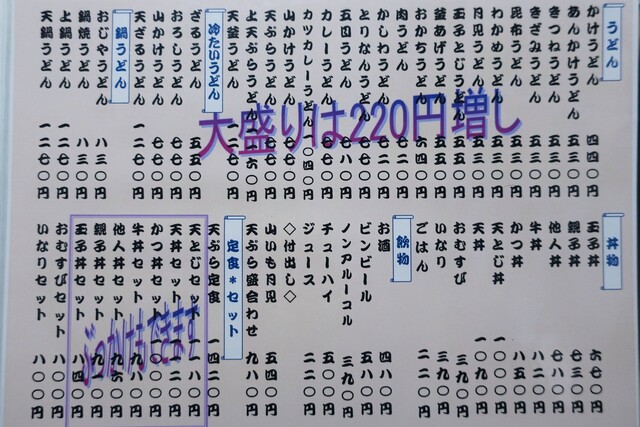 うどん
かけうどん 四四〇円
あんかけうどん 五三〇円
きつねうどん 五三〇円
きざみうどん 五三〇円
昆布うどん 五三〇円
わかめうどん 五三〇円
月見うどん 五三〇円
玉子とじうどん
釜あげうどん 五五〇円
おかちんうどん 六四〇円
肉うどん 七二〇円
かしわうどん 七二〇円
とりなんうどん 七七〇円
五目うどん 七八〇円
カレーうどん 七七〇円
カツカレーうどん 一〇四〇円
山かけうどん 七七〇円
天ぷらうどん 七七〇円
上天ぷらうどん
天釜うどん 一二七〇円
大盛りは220円増し
冷たいうどん
ざるうどん 五五〇円
おろしうどん 七七〇円
山かけうどん 七七〇円
天ざるうどん 一二七〇円
鍋うどん
おじやうどん 八三〇円
鍋焼うどん 八三〇円
上鍋うどん 一二七〇円
天鍋うどん 一二七〇円
丼物
玉子丼 六七〇円
親子丼 七三〇円
他人丼 八一〇円
牛丼 八二〇円
かつ丼 八五〇円
天とじ丼 一〇九〇円
天丼 一〇九〇円
おむすび 三九〇円
いなり 三九〇円
ごはん 二二〇円
飲物
お酒 四八〇円
ビンビール 五八〇円
ノンアルコール 三九〇円
チューハイ 三五〇円
ジュース 二二〇円
◇付出し◇
山いも月見 五四〇円
天ぷら盛合わせ 九八〇円
定食*セット
天ぷら定食 一四二〇円
天とじセット
天丼セット
かつ丼セット
牛丼セット
他人丼セット
親子丼セット
玉子丼セット
ぶっかけもできます
おむすびセット 八〇〇円
いなりセット 八〇〇円